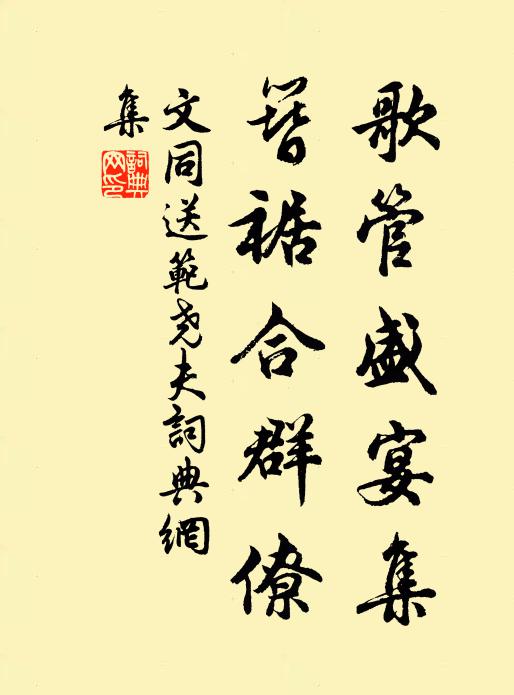 歌管盛宴集
簪裾合群僚
文同送範尧夫詞典網
集
詞典網印